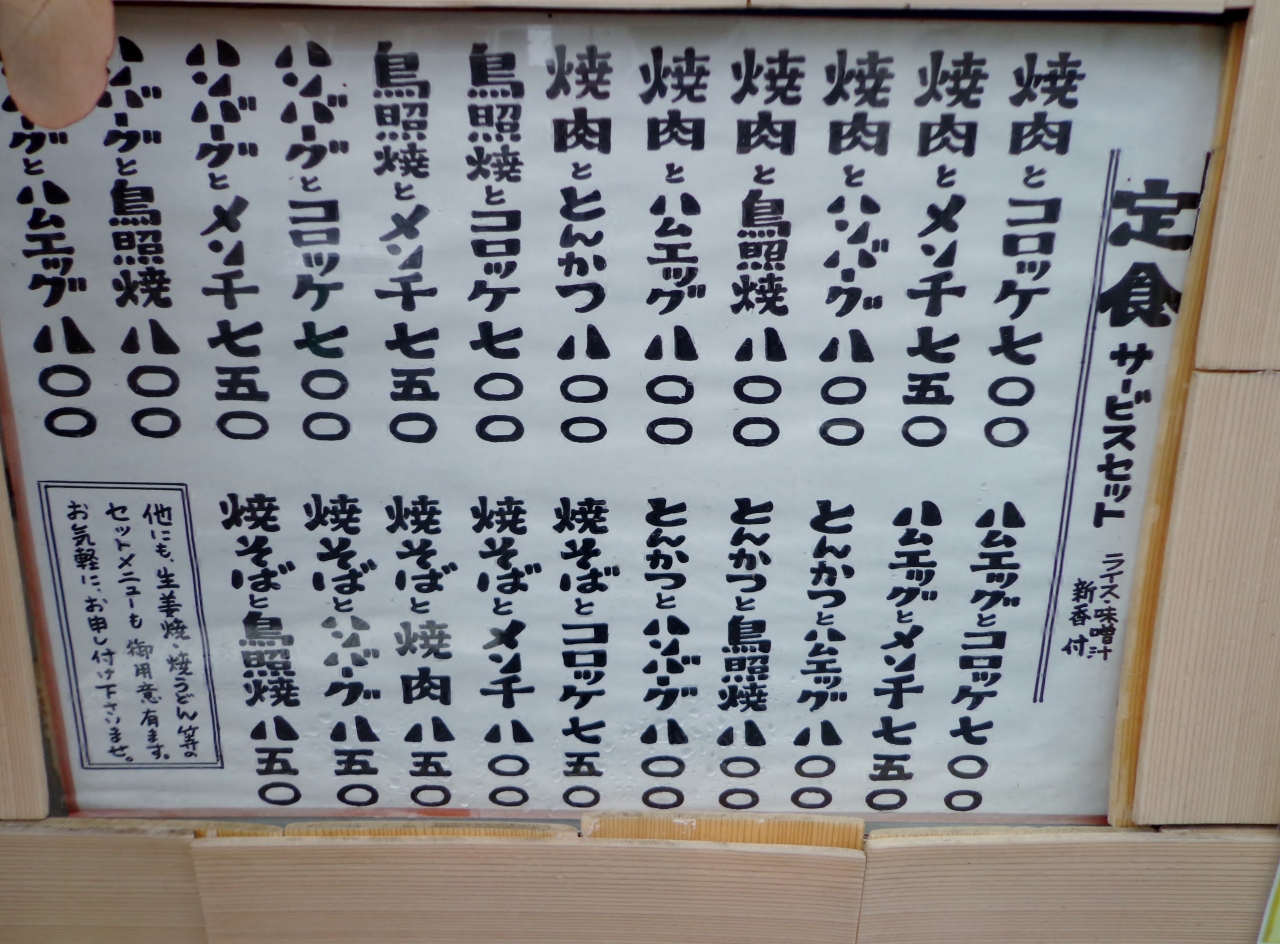 定食 サービスセット ライス・味噌汁
新香 付
焼肉とコロッケ 七〇〇
焼肉とメンチ 七五〇
焼肉とハンバーグ 八〇〇
焼肉と鳥照焼 八〇〇
焼肉とハムエッグ 八〇〇
焼肉ととんかつ 八〇〇
鳥照焼とコロッケ 七〇〇
鳥照焼とメンチ 七五〇
ハンバーグとコロッケ 七〇〇
ハンバーグとメンチ 七五〇
ハンバーグと鳥照焼 八〇〇
ハンバーグとハムエッグ 八〇〇
ハムエッグとコロッケ 七〇〇
ハムエッグとメンチ 七五〇
とんかつとハムエッグ 八〇〇
とんかつと鳥照焼 八〇〇
とんかつとハンバーグ 八〇〇
焼そばとコロッケ 七五〇
焼そばとメンチ 八〇〇
焼そばと焼肉 八五〇
焼そばとハンバーグ 八五〇
焼そばと鳥照焼 八五〇
他にも、生姜焼・焼うどん等の
セットメニューも御用意有ます。
お気軽に、お申し付け下さいませ。